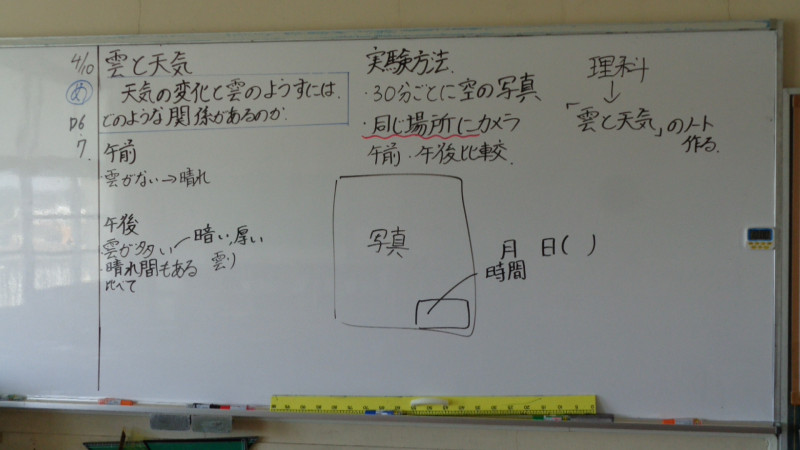 4/10
め
P6
7.
雲と天気
天気の変化と雲のようすには、
どのような関係があるのか。
午前
雲がない→晴れ
午後
雲が多い 暗い、厚い
雲)
・晴れ間もある
比べて
実験方法
・30分ごとに空の写真
・同じ場所にカメラ
午前・午後比較
写真
月 日( )
時間
理科
↓
「雲と天気」のノート
作る。